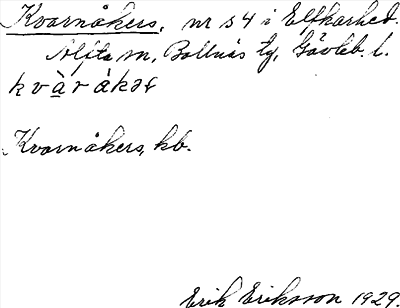 Kvarnåkers, nr 54 i Elfkarhed.
Alfta sn, Bollnäs tg, Gävleb. l.
Kvarnåkers, kb.
Erik Eriksson 1929.